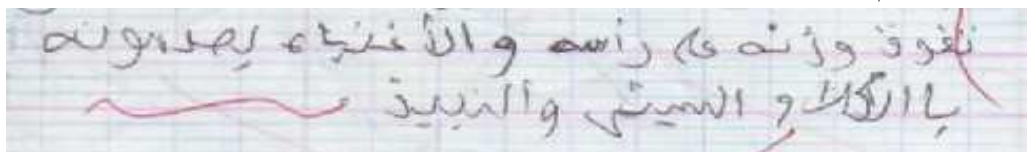 تفوق وزنه في رأسه و الأغنياء يصدمونه
باالكلام السيئ والنبيذ